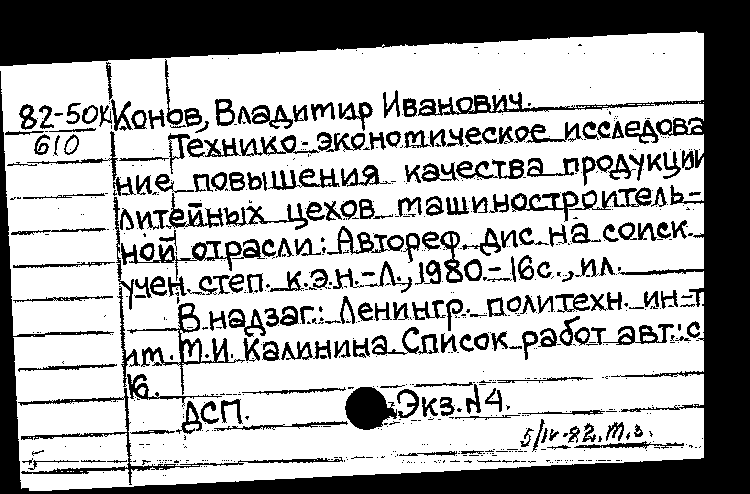 82-50К Конов, Владимир Иванович.
610 Технико-экономическое исследова
ние повышения качества продукции
литейных цехов машиностроитель-
ной отрасли: Автореф. дис. на соиск.
учен. степ. к.э.н.-Л., 1980.-16с., ил.
В надзаг.: Ленингр. политехн. ин-т
им. М.И. Калинина. Список работ авт.: с
16.
ДСП. Экз. №4.
5/IV-82. т.з.
5